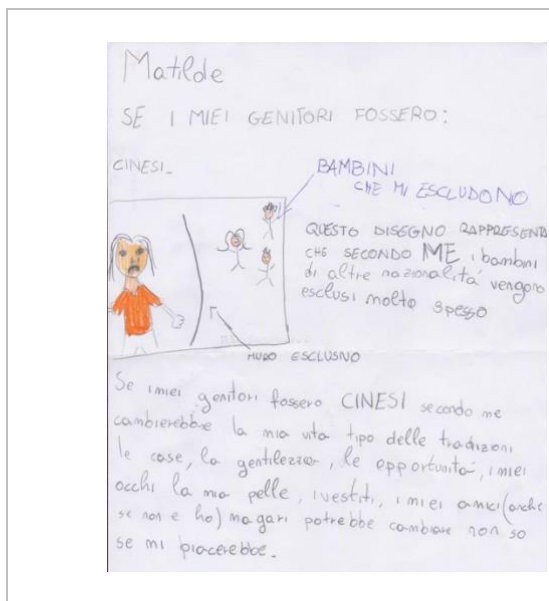 Matilde
SE I MIEI GENITORI FOSSERO:
CINESI_
BAMBINI
CHE MI ESCLUDONO
QUESTO DISEGNO RAPPRESENTA
CHE SECONDO ME i bambini
di altre nazionalità vengono
esclusi molto spesso
MURO ESCLUSNO
Se i miei genitori fossero CINESI secondo me
cambierebbe la mia vita tipo delle tradizioni
le case, la gentilezza, le opportunità, i miei
occhi la mia pelle, i vestiti, i miei amici (anche
se non e ho) magari potrebbe cambiare non so
se mi piacerebbe.